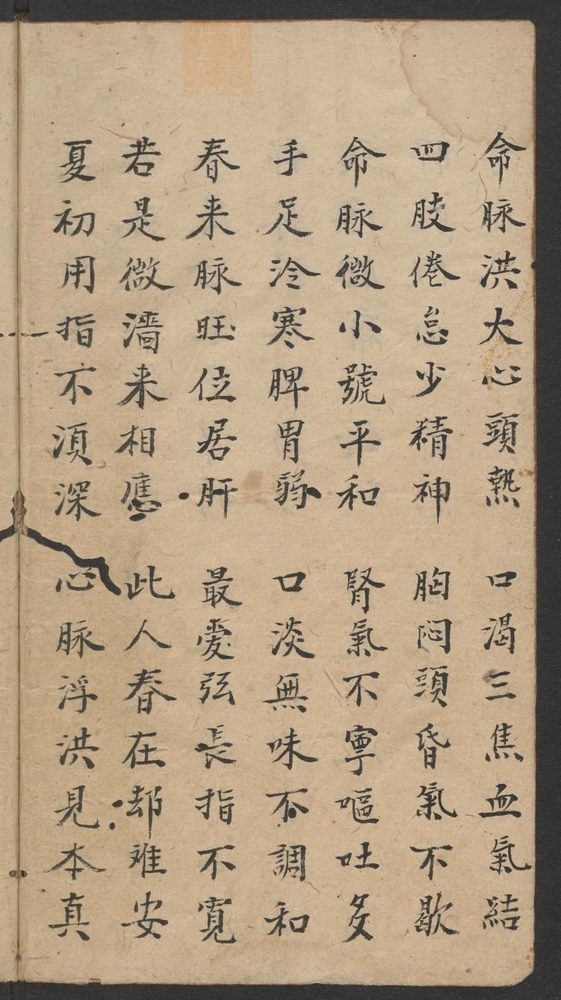 命脉洪大心頭熱　口渴三焦血氣結
四肢倦怠少精神　胸闷頭昏氣不歇
命脉微小號平和　腎氣不寧嘔吐多
手足冷寒脾胃弱　口淡無味不調和
春来脉旺位居肝　最愛弦長指不寬
若是微濇来相應　此人春在却难安
夏初用指不須深　心脉浮洪見本真